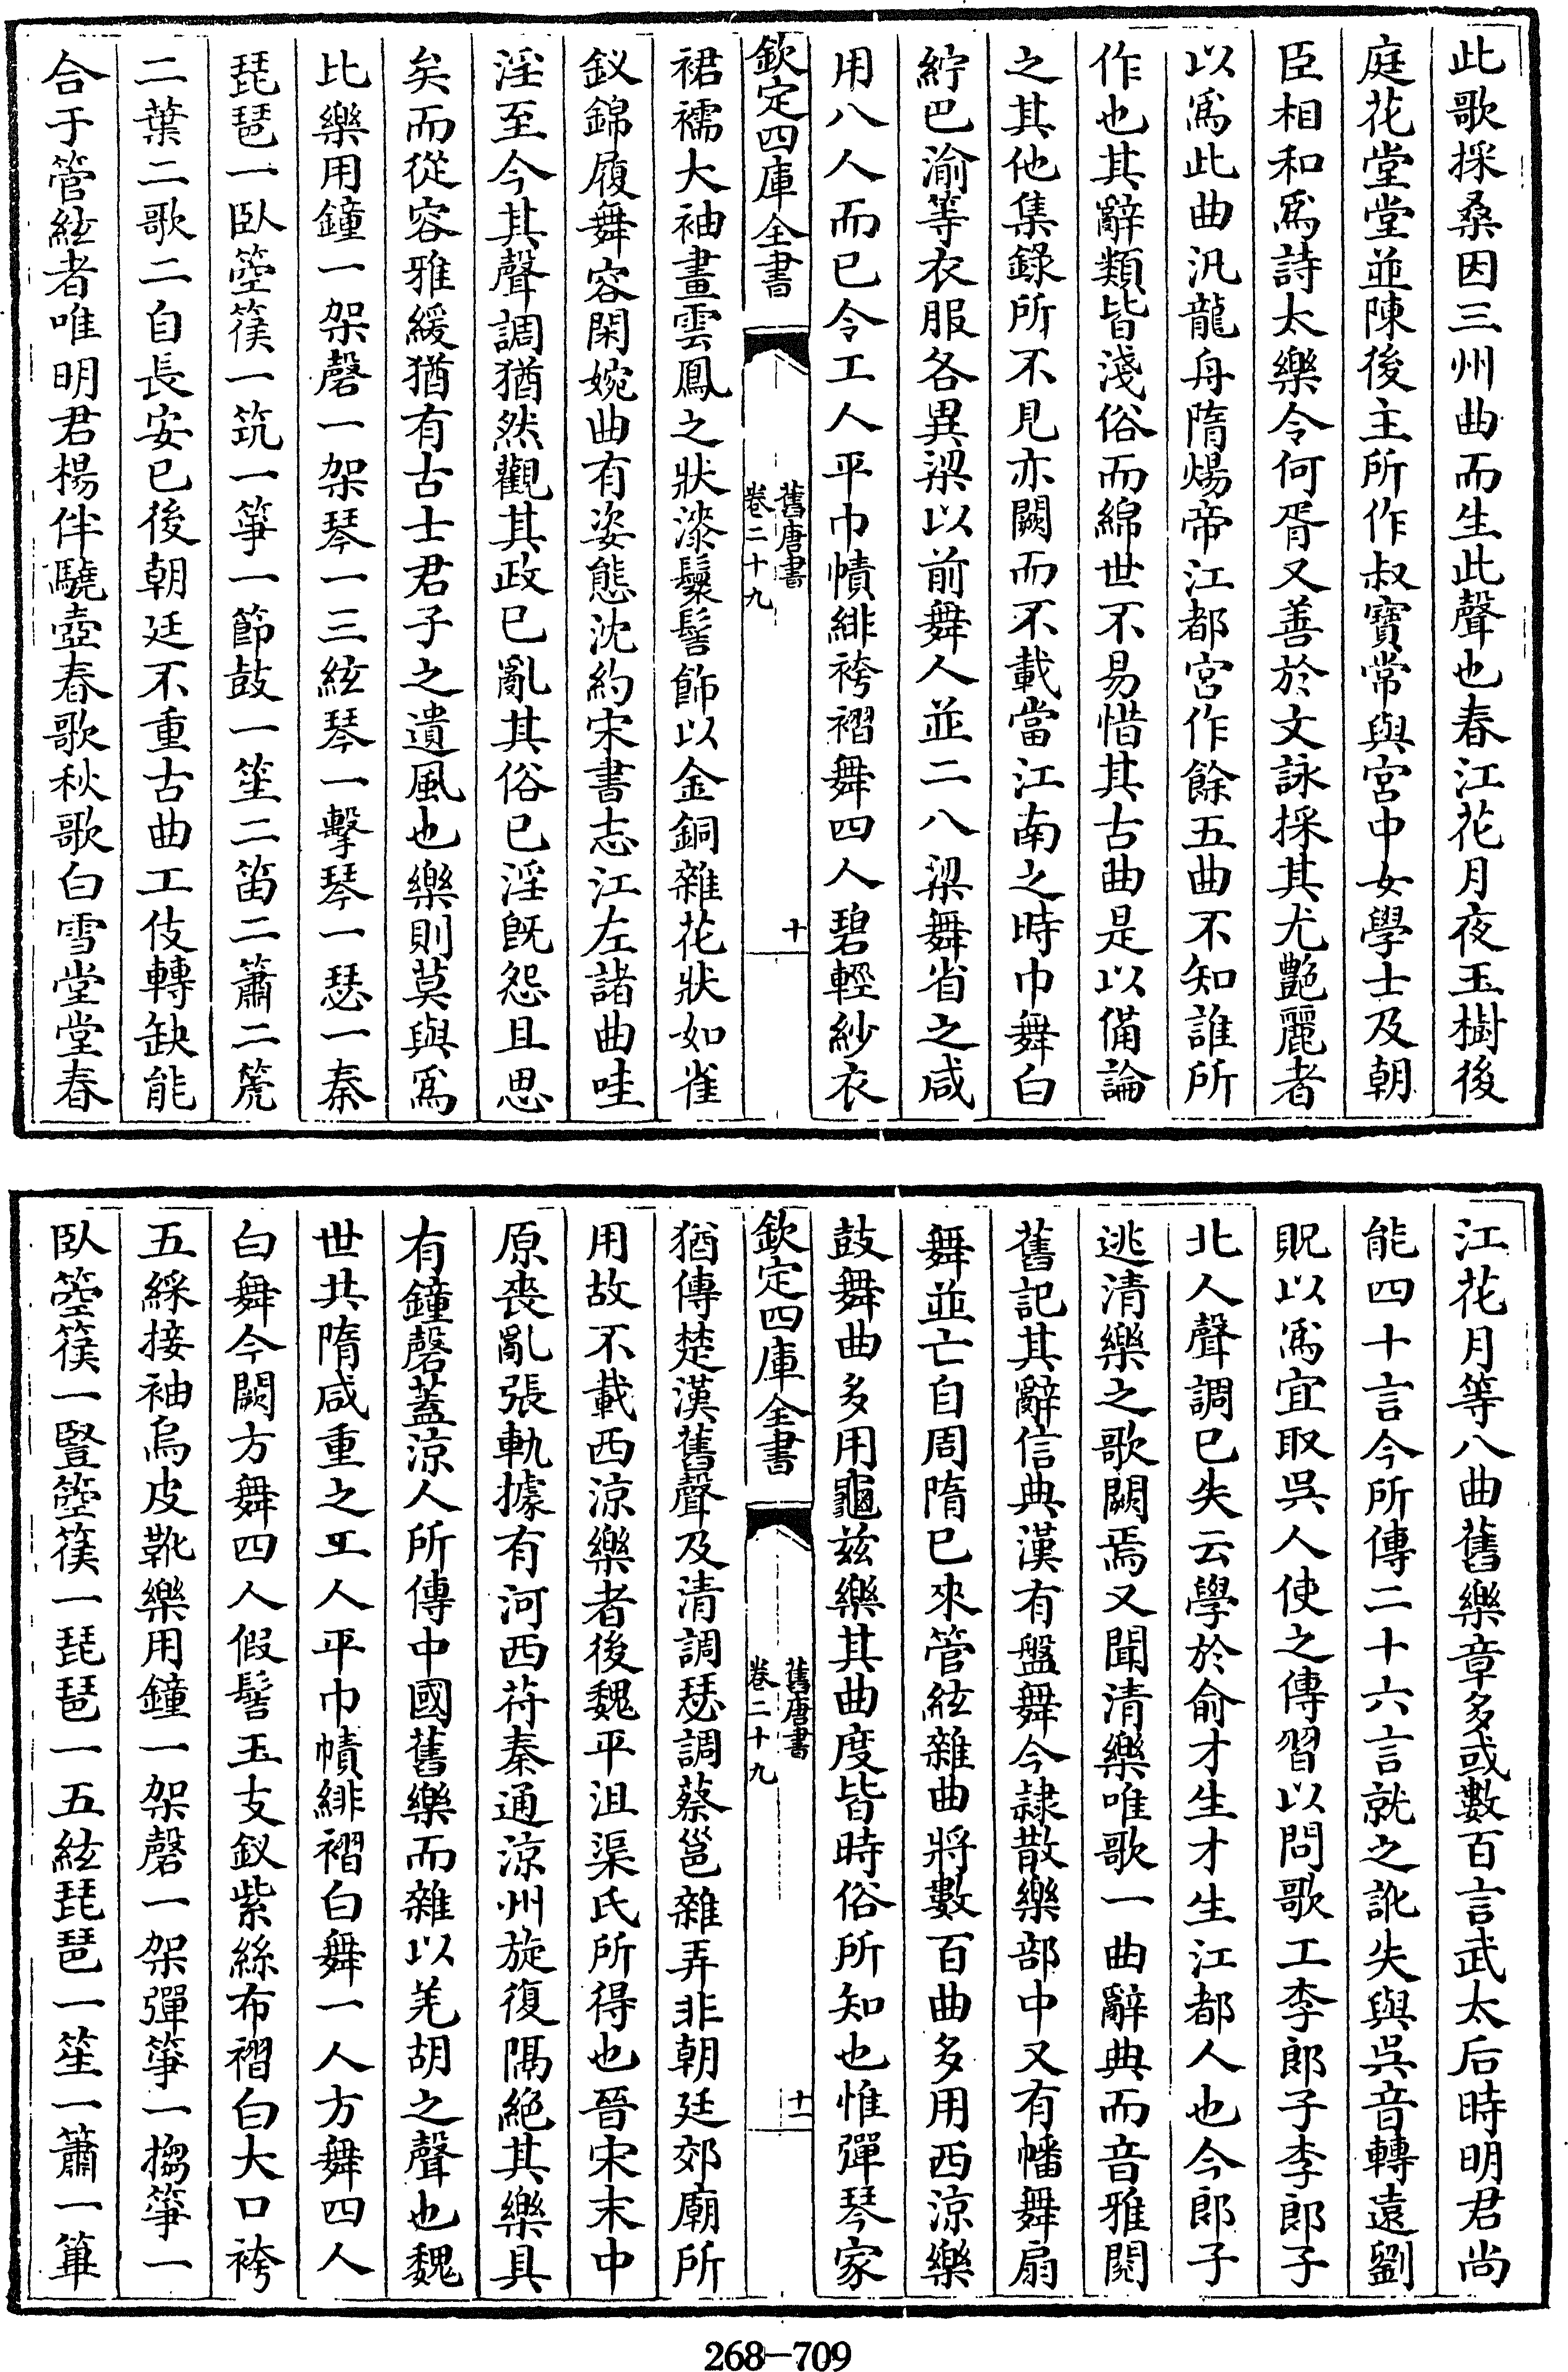 此歌採桑因三州曲而生此聲也春江花月夜玉樹後
庭花堂堂並陳後主所作叔寶常與宮中女學士及朝
臣相和爲詩太樂令何胥又善於文詠採其尤艶麗者
以爲此曲汎龍舟隋煬帝江都宮作餘五曲不知誰所
作也其辭類皆淺俗而綿世不易惜其古曲是以備論
之其他集錄所不見亦闕而不載當江南之時巾舞白
紵巴渝等衣服各異梁以前舞人並二八梁舞省之咸
用八人而已令工人平巾幘緋袴褶舞四人碧輕紗衣
欽定四庫全書
舊唐書
卷二十九
十
裙襦大袖畫雲鳳之狀漆鬟髻飾以金銅雜花狀如雀
釵錦履舞容閑婉曲有姿態沈約宋書志江左諸曲哇
淫至今其聲調猶然觀其政已亂其俗已淫旣怨且思
矣而從容雅緩猶有古士君子之遺風也樂則莫與爲
比樂用鐘一架磬一架琴一三絃琴一擊琴一瑟一秦
琵琶一臥箜篌一筑一箏一節鼓一笙二笛二簫二箎
二葉二歌二自長安已後朝廷不重古曲工伎轉缺能
合于管絃者唯明君楊伴驍壺春歌秋歌白雪堂堂春
江花月等八曲舊樂章多或數百言武太后時明君尚
能四十言今所傳二十六言就之訛失與吳音轉遠劉
貺以爲宜取吳人使之傳習以問歌工李郎子李郎子
北人聲調已失云學於俞才生才生江都人也今郎子
逃清樂之歌闕焉又聞清樂唯歌一曲辭典而音雅閱
舊記其辭信典漢有盤舞今隸散樂部中又有幡舞扇
舞並亡自周隋已來管絃雜曲將數百曲多用西涼樂
鼓舞曲多用龜兹樂其曲度皆時俗所知也惟彈琴家
欽定四庫全書
舊唐書
卷二十九
十一
猶傳楚漢舊聲及清調瑟調蔡邕雜弄非朝廷郊廟所
用故不載西涼樂者後魏平沮渠氏所得也晉宋末中
原喪亂張軌據有河西苻秦通涼州旋復隔絶其樂具
有鐘磬蓋涼人所傳中國舊樂而雜以羌胡之聲也魏
世共隋咸重之工人平巾幘緋褶白舞一人方舞四人
白舞今闕方舞四人假髻玉支釵紫絲布褶白大口袴
五綵接袖烏皮靴樂用鐘一架磬一架彈箏一搊箏一
臥箜篌一豎箜篌一琵琶一五絃琵琶一笙一簫一篳
268-709